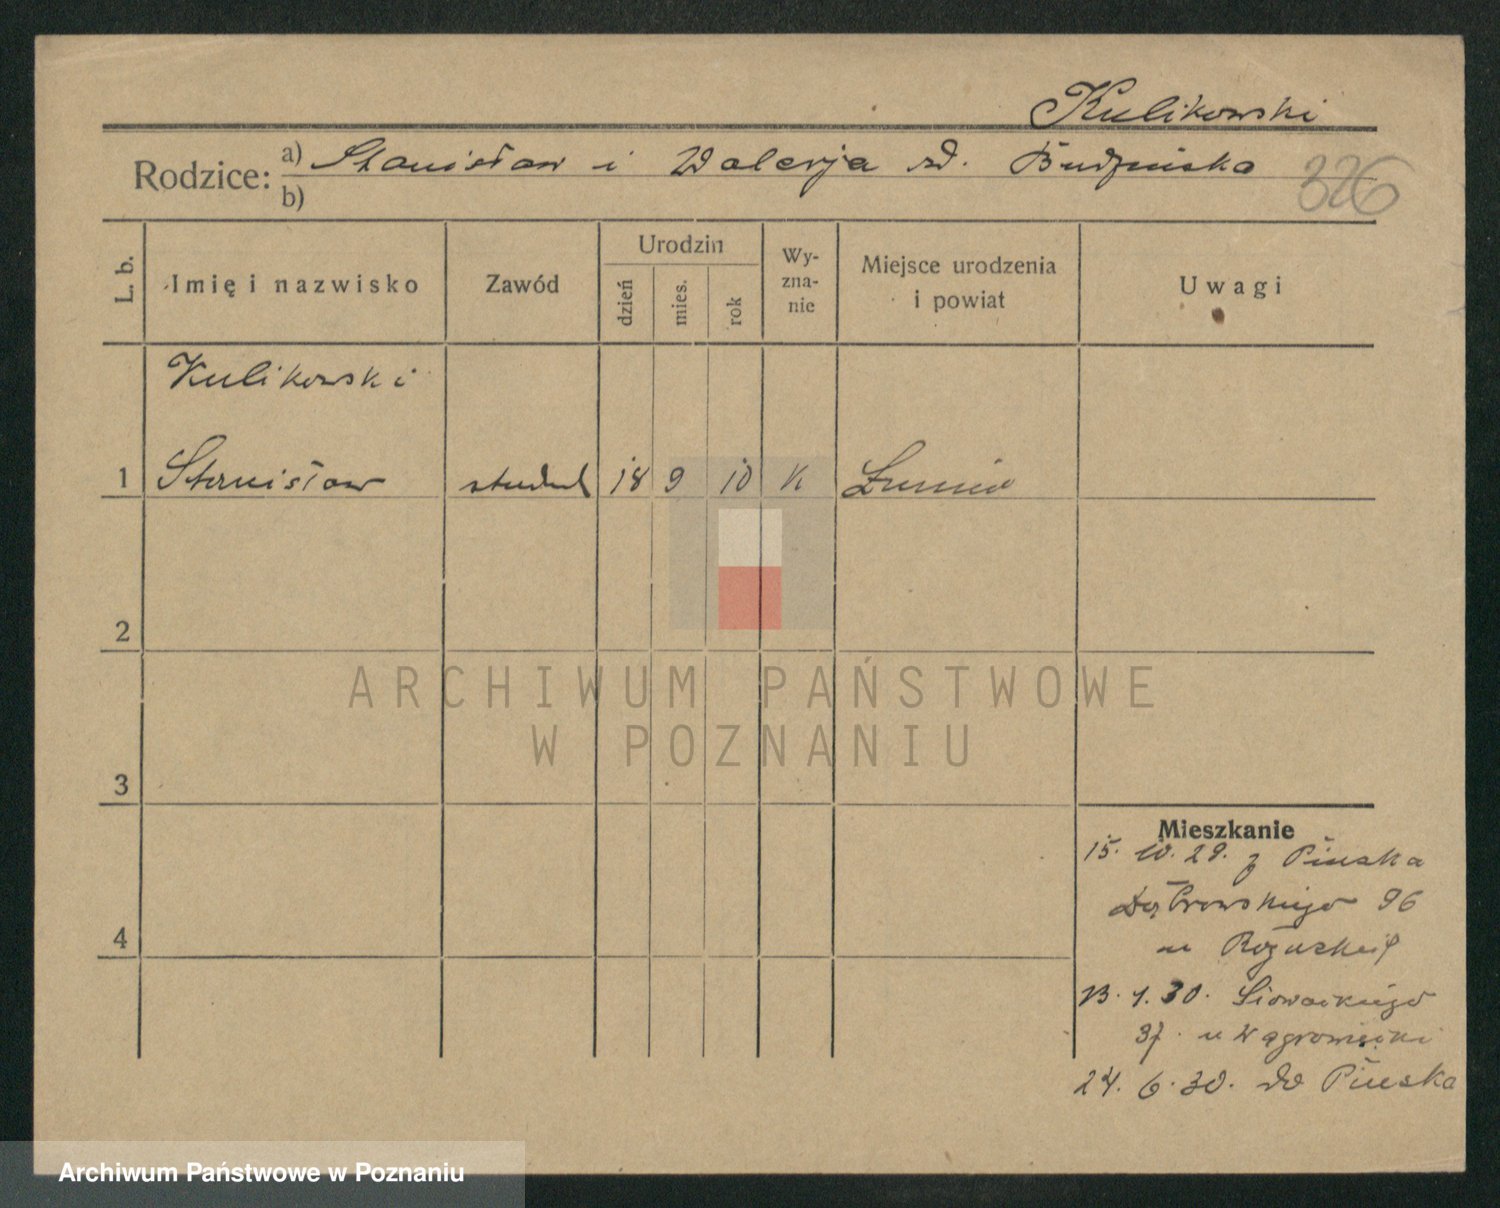 Kulikowski
Rodzice: a) Stanisław i Walerja zd. Budzińska
b)
326
L. b.
Imię i nazwisko
Zawód
Urodzin
dzień
mies.
rok
Wy-
zna-
nie
Miejsce urodzenia
i powiat
Uwagi
Kulikowski
1 Stanisław student 18 9 10 K
2
3
4
Mieszkanie
15. 10. 29. z Pińska
Dąbrowskiego 96
u
13. 1. 30. Słowackiego
37 u
24. 6. 30. do Pińska
ARCHIWUM PAŃSTWOWE
W POZNANIU
Archiwum Państwowe w Poznaniu